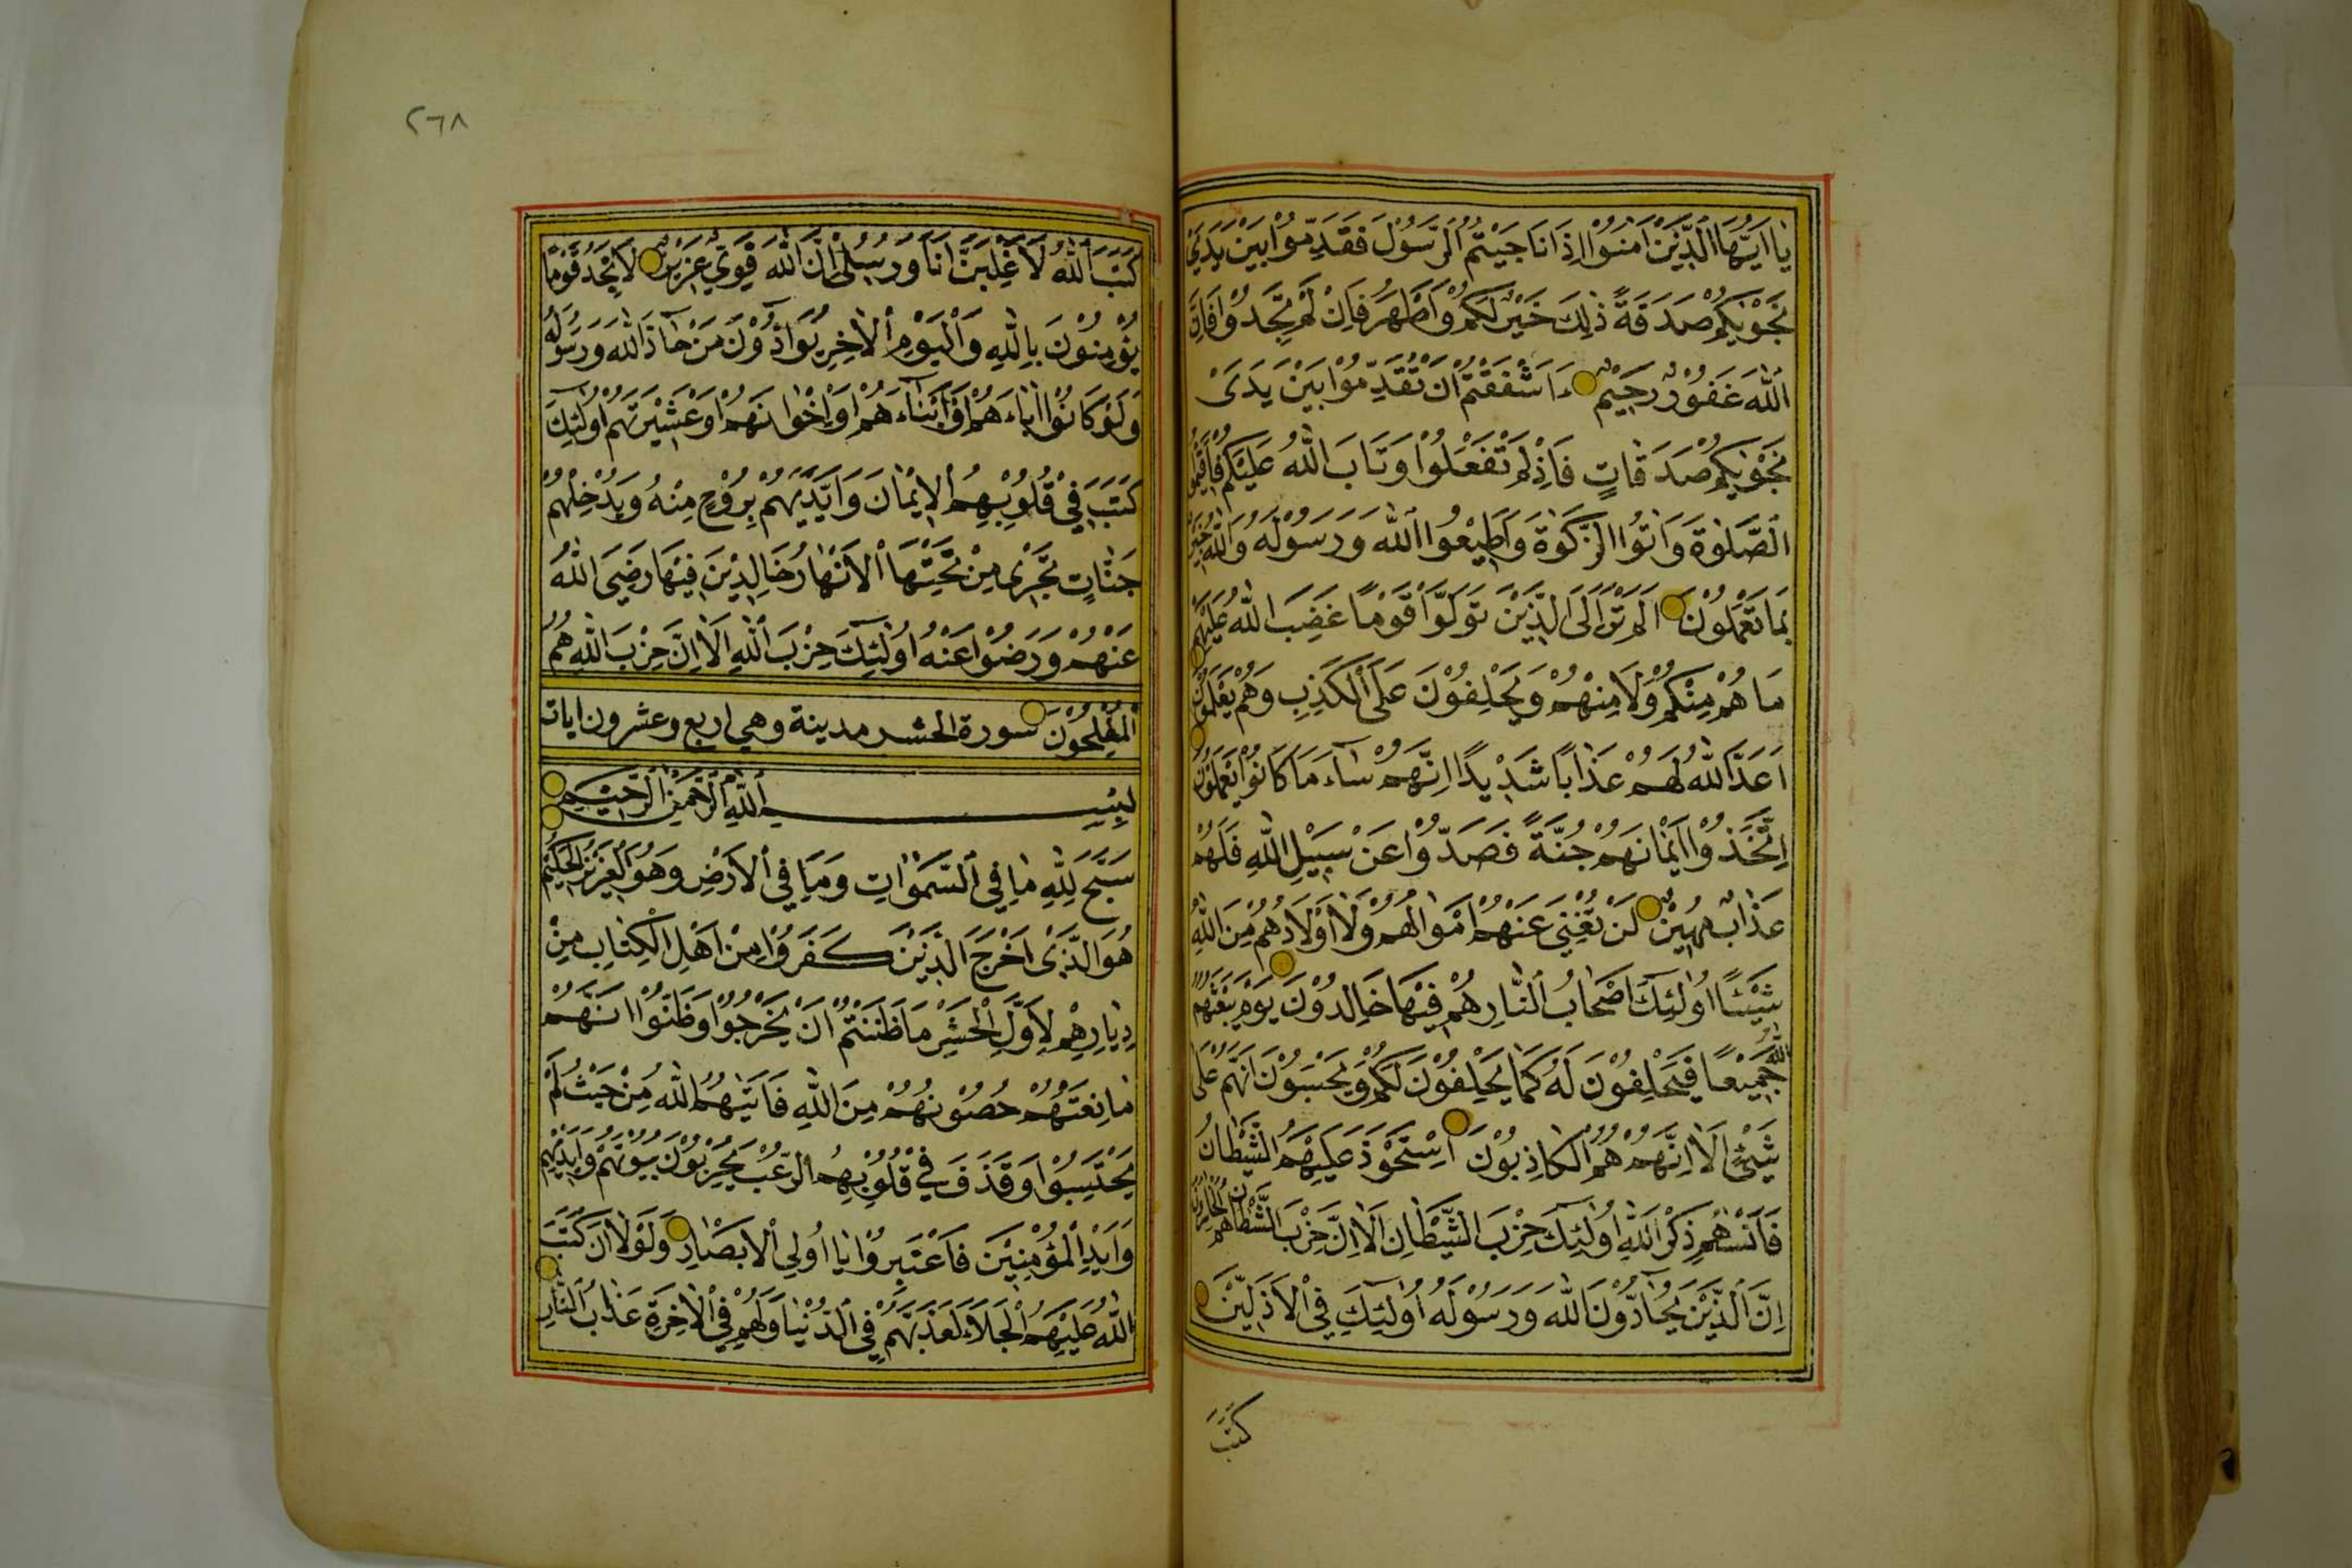 يَا اَيُّهَا الَّذِيْنَ اٰمَنُوْا اِذَا نَاجَيْتُمُ الرَّسُوْلَ فَقَدِّمُوْا بَيْنَ يَدَيْ
نَجْوٰيكُمْ صَدَقَةً ذٰلِكَ خَيْرٌ لَكُمْ وَاَطْهَرُ فَاِنْ لَمْ تَجِدُوْا فَاِنَّ
اللّٰهَ غَفُوْرٌ رَحِيْمٌ ءَاَشْفَقْتُمْ اَنْ تُقَدِّمُوْا بَيْنَ يَدَىْ
نَجْوٰيكُمْ صَدَقَاتٍ فَاِذْ لَمْ تَفْعَلُوْا وَتَابَ اللّٰهُ عَلَيْكُمْ فَاَقِيْمُوا
الصَّلٰوةَ وَاٰتُوا الزَّكٰوةَ وَاَطِيْعُوا اللّٰهَ وَرَسُوْلَهُ وَاللّٰهُ خَبِيْرٌ
بِمَا تَعْمَلُوْنَ اَلَمْ تَرَ اِلَى الَّذِيْنَ تَوَلَّوْا قَوْمًا غَضِبَ اللّٰهُ عَلَيْهِمْ
مَا هُمْ مِنْكُمْ وَلَا مِنْهُمْ وَيَحْلِفُوْنَ عَلَى الْكَذِبِ وَهُمْ يَعْلَمُوْنَ
اَعَدَّ اللّٰهُ لَهُمْ عَذَابًا شَدِيْدًا اِنَّهُمْ سَاءَ مَا كَانُوْا يَعْمَلُوْنَ
اِتَّخَذُوْا اَيْمَانَهُمْ جُنَّةً فَصَدُّوْا عَنْ سَبِيْلِ اللّٰهِ فَلَهُمْ
عَذَابٌ مُهِيْنٌ لَنْ تُغْنِىَ عَنْهُمْ اَمْوَالُهُمْ وَلَا اَوْلَادُهُمْ مِنَ اللّٰهِ
شَيْئًا اُولٰئِكَ اَصْحَابُ النَّارِ هُمْ فِيْهَا خَالِدُوْنَ يَوْمَ يَبْعَثُهُمُ
اللّٰهُ جَمِيْعًا فَيَحْلِفُوْنَ لَهُ كَمَا يَحْلِفُوْنَ لَكُمْ وَيَحْسَبُوْنَ اَنَّهُمْ عَلٰى
شَيْئٍ اَلَا اِنَّهُمْ هُمُ الْكَاذِبُوْنَ اِسْتَحْوَذَ عَلَيْهِمُ الشَّيْطَانُ
فَاَنْسٰهُمْ ذِكْرَ اللّٰهِ اُولٰئِكَ حِزْبُ الشَّيْطَانِ اَلَا اِنَّ حِزْبَ الشَّيْطَانِ هُمُ الْخَاسِرُوْنَ
اِنَّ الَّذِيْنَ يُحَادُّوْنَ اللّٰهَ وَرَسُوْلَهُ اُولٰئِكَ فِى الْاَذَلِّيْنَ
كَتَبَ
٢٦٨
كَتَبَ اللّٰهُ لَاَغْلِبَنَّ اَنَا وَرُسُلِىْ اِنَّ اللّٰهَ قَوِىٌّ عَزِيْزٌ لَا تَجِدُ قَوْمًا
يُؤْمِنُوْنَ بِاللّٰهِ وَالْيَوْمِ الْاٰخِرِ يُوَادُّوْنَ مَنْ حَادَّ اللّٰهَ وَرَسُوْلَهُ
وَلَوْ كَانُوْا اٰبَاءَهُمْ اَوْ اَبْنَاءَهُمْ اَوْ اِخْوَانَهُمْ اَوْ عَشِيْرَتَهُمْ اُولٰئِكَ
كَتَبَ فِىْ قُلُوْبِهِمُ الْاِيْمَانَ وَاَيَّدَهُمْ بِرُوْحٍ مِنْهُ وَيُدْخِلُهُمْ
جَنَّاتٍ تَجْرِىْ مِنْ تَحْتِهَا الْاَنْهَارُ خَالِدِيْنَ فِيْهَا رَضِىَ اللّٰهُ
عَنْهُمْ وَرَضُوْا عَنْهُ اُولٰئِكَ حِزْبُ اللّٰهِ اَلَا اِنَّ حِزْبَ اللّٰهِ هُمُ
الْمُفْلِحُوْنَ سورة الحشر مدينة وهي اربع وعشرون ايات
بِسْمِ اللّٰهِ الرَّحْمٰنِ الرَّحِيْمِ
سَبَّحَ لِلّٰهِ مَا فِى السَّمٰوَاتِ وَمَا فِى الْاَرْضِ وَهُوَ الْعَزِيْزُ الْحَكِيْمُ
هُوَ الَّذِىْ اَخْرَجَ الَّذِيْنَ كَفَرُوْا مِنْ اَهْلِ الْكِتَابِ مِنْ
دِيَارِهِمْ لِاَوَّلِ الْحَشْرِ مَا ظَنَنْتُمْ اَنْ يَخْرُجُوْا وَظَنُّوْا اَنَّهُمْ
مَانِعَتُهُمْ حُصُوْنُهُمْ مِنَ اللّٰهِ فَاَتٰيهُمُ اللّٰهُ مِنْ حَيْثُ لَمْ
يَحْتَسِبُوْا وَقَذَفَ فِىْ قُلُوْبِهِمُ الرُّعْبَ يُخْرِبُوْنَ بُيُوْتَهُمْ بِاَيْدِيْهِمْ
وَاَيْدِى الْمُؤْمِنِيْنَ فَاعْتَبِرُوْا يَا اُولِى الْاَبْصَارِ وَلَوْلَا اَنْ كَتَبَ
اللّٰهُ عَلَيْهِمُ الْجَلَاءَ لَعَذَّبَهُمْ فِى الدُّنْيَا وَلَهُمْ فِى الْاٰخِرَةِ عَذَابُ النَّارِ